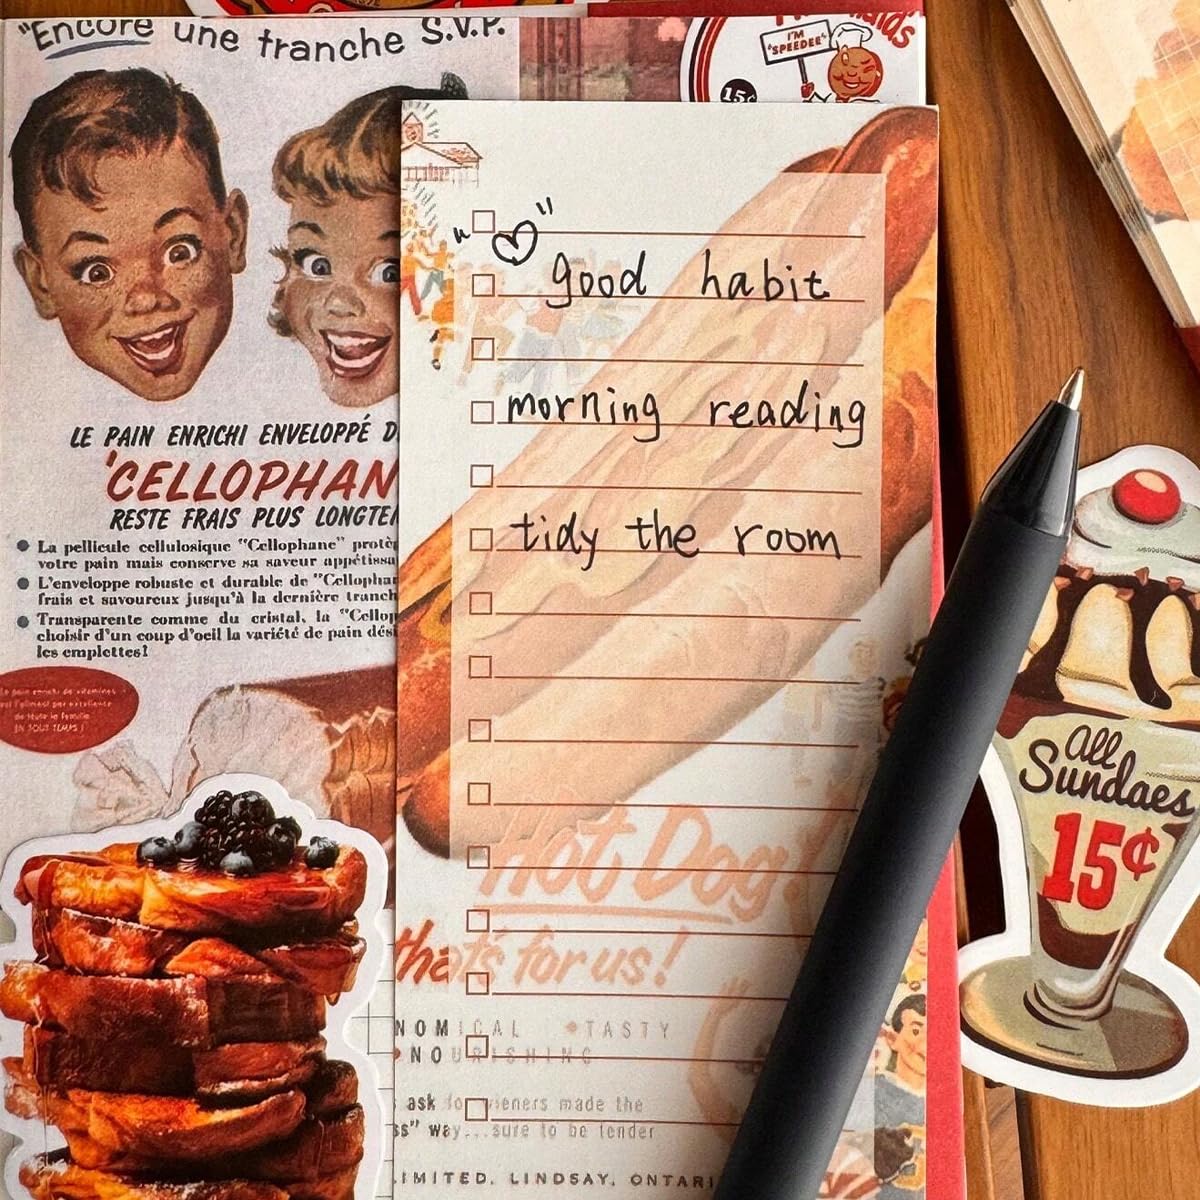 "Encore une tranche S.V.P.
I'M
"SPEEDEE"
15¢
LE PAIN ENRICHI ENVELOPPÉ
'CELLOPHAN
RESTE FRAIS PLUS
La pellicule cellulosique "Cellophane"
votre pain mais conserve sa saveur
L'enveloppe robuste et durable de
frais et savoureux jusqu'à la dernière
Transparente comme du cristal, la
choisir d'un coup d'oeil la variété de pain
les emplettes!
EN TOUT TEMPS!
good habit
morning reading
tidy the room
Hot Dog
that's for us!
NOMICAL TASTY
NOURISHING
ask for wieners made the
way...sure to be tender
LIMITED, LINDSAY, ONTARI
All
Sundaes
15¢